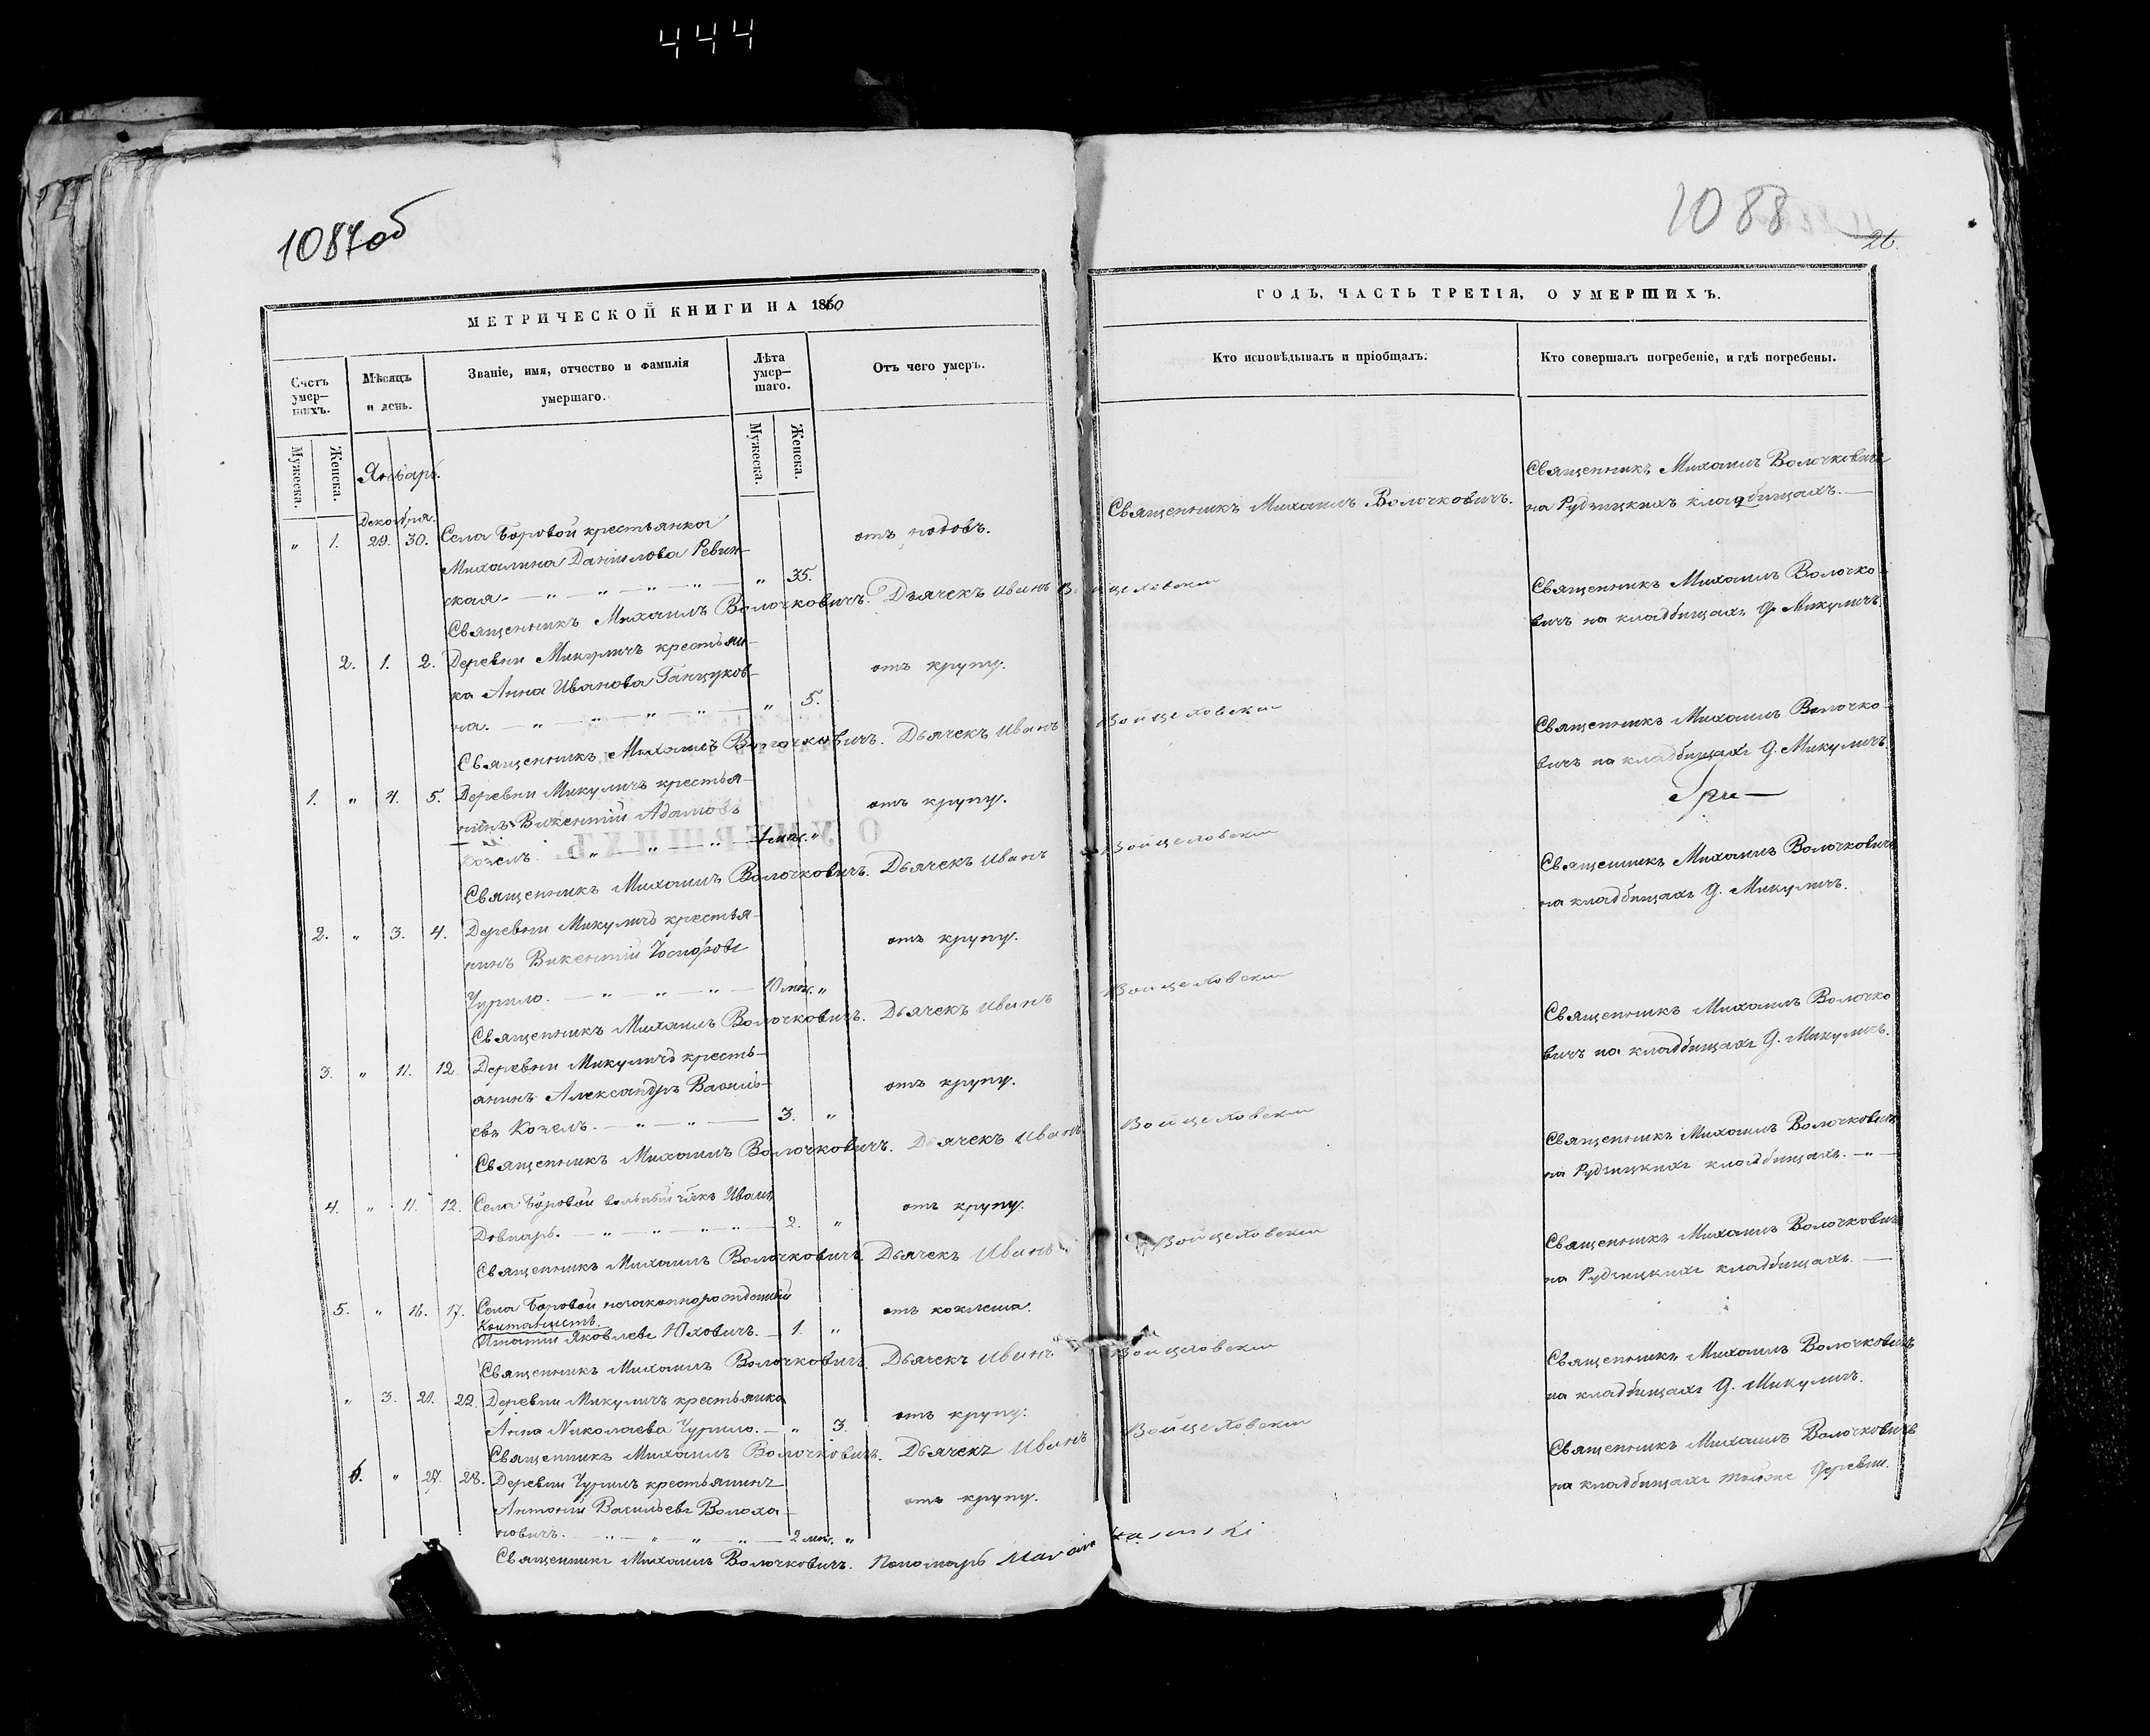 444
1087об
1088
26.
МЕТРИЧЕСКОЙ КНИГИ НА 1860
ГОДЪ, ЧАСТЬ ТРЕТІЯ, О УМЕРШИХЪ.
Счетъ умер-шихъ.
Мѣсяцъ и день.
Званіе, имя, отчество и фамилія умершаго.
Лѣта умер-шаго.
Отъ чего умеръ.
Кто исповѣдывалъ и пріобщалъ.
Кто совершалъ погребеніе, и гдѣ погребены.
Мужеска.
Женска.
Мужеска.
Женска.
Январь.
Декабря.
„ 1. 29. 30. Села Боровой крестьянка
Михалина Даніилова Ревин-
ская. „ 35.
отъ родовъ.
Священникъ Михаилъ Волочковичъ.
Священникъ Михаилъ Волочковичъ
на Рудницкихъ кладбищахъ.
Священникъ Михаилъ Волочковичъ. Дьячекъ Иванъ Войцеховскій
2. 1. 2. Деревни Микуличъ крестьян-
ка Анна Иванова Ганцуков-
на. „ 5.
отъ крупу.
Священникъ Михаилъ Волочко-
вичъ на кладбищахъ д. Микуличъ.
Священникъ Михаилъ Волочковичъ. Дьячекъ Иванъ Войцеховскій
1. „ 4. 5. Деревни Микуличъ крестья-
нинъ Викентій Адамовъ
Козелъ. 4 мѣс. „
отъ крупу.
Священникъ Михаилъ Волочко-
вичъ на кладбищахъ д. Микуличъ
Священникъ Михаилъ Волочковичъ. Дьячекъ Иванъ Войцеховскій
2. „ 3. 4. Деревни Микуличъ крестья-
нинъ Викентій Іосифовъ
Чурило. 10 мѣс. „
отъ крупу.
Священникъ Михаилъ Волочковичъ
на кладбищахъ д. Микуличъ.
Священникъ Михаилъ Волочковичъ. Дьячекъ Иванъ Войцеховскій
3. „ 11. 12 Деревни Микуличъ кресть-
янинъ Александръ Василь-
евъ Козелъ. 3. „
отъ крупу.
Священникъ Михаилъ Волочко
вичъ на кладбищахъ д. Микуличъ.
Священникъ Михаилъ Волочковичъ. Дьячекъ Иванъ Войцеховскій
4. „ 11. 12. Села Боровой вольный Иванъ
2. „
отъ крупу.
Священникъ Михаилъ Волочковичъ
на Рудницкихъ кладбищахъ.
Священникъ Михаилъ Волочковичъ. Дьячекъ Иванъ Войцеховскій
5. „ 16. 17. Села Боровой незаконнорожденный
Игнатій Яковлевъ Юховичъ. 1. „
отъ коклюша.
Священникъ Михаилъ Волочковичъ
на Рудницкихъ кладбищахъ.
Священникъ Михаилъ Волочковичъ. Дьячекъ Иванъ Войцеховскій
„ 3. 21. 22. Деревни Микуличъ крестьянка
Анна Николаева Чурило. „ 3.
отъ крупу.
Священникъ Михаилъ Волочковичъ
на кладбищахъ д. Микуличъ.
Священникъ Михаилъ Волочковичъ. Дьячекъ Иванъ Войцеховскій
6. „ 27. 28. Деревни Чурилъ крестьянинъ
Антоній Васильевъ Волоха-
новичъ. 2 мѣс. „
отъ крупу.
Священникъ Михаилъ Волочковичъ
на кладбищахъ тойже деревни.
Священникъ Михаилъ Волочковичъ. Пономарь